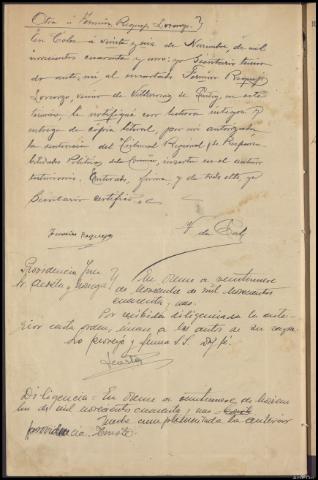 Otra á Fermín Requejo Lorenzo.
En Cea á veinte y seis de Noviembre, de mil
novecientos cuarenta y uno; yo Secretario teniendo
ante mi al encartado Fermín Requejo
Lorenzo, vecino de Villarmaz de en este
término, le notifiqué con lectura íntegra y
entrega de copia literal, por mi autorizada,
la sentencia del Tribunal Regional de Responsa-
bilidades Políticas de Coruña, inserta en el anterior
testimonio. Enterado, firma, y de todo ello yo
Secretario certifico
Fermín Requejo
Providencia Juez
Sr. Acosta En Orense a veintinueve
de Noviembre de mil novecientos
cuarenta y uno.
Por recibida diligenciada la ante-
rior carta orden, únase a los autos de su razón
Lo proveyó y firma S.S. Doy fé
Acosta
Diligencia: En Orense a veintinueve de Noviem-
bre de mil novecientos cuarenta y uno
queda cumplimentada la anterior
providencia.